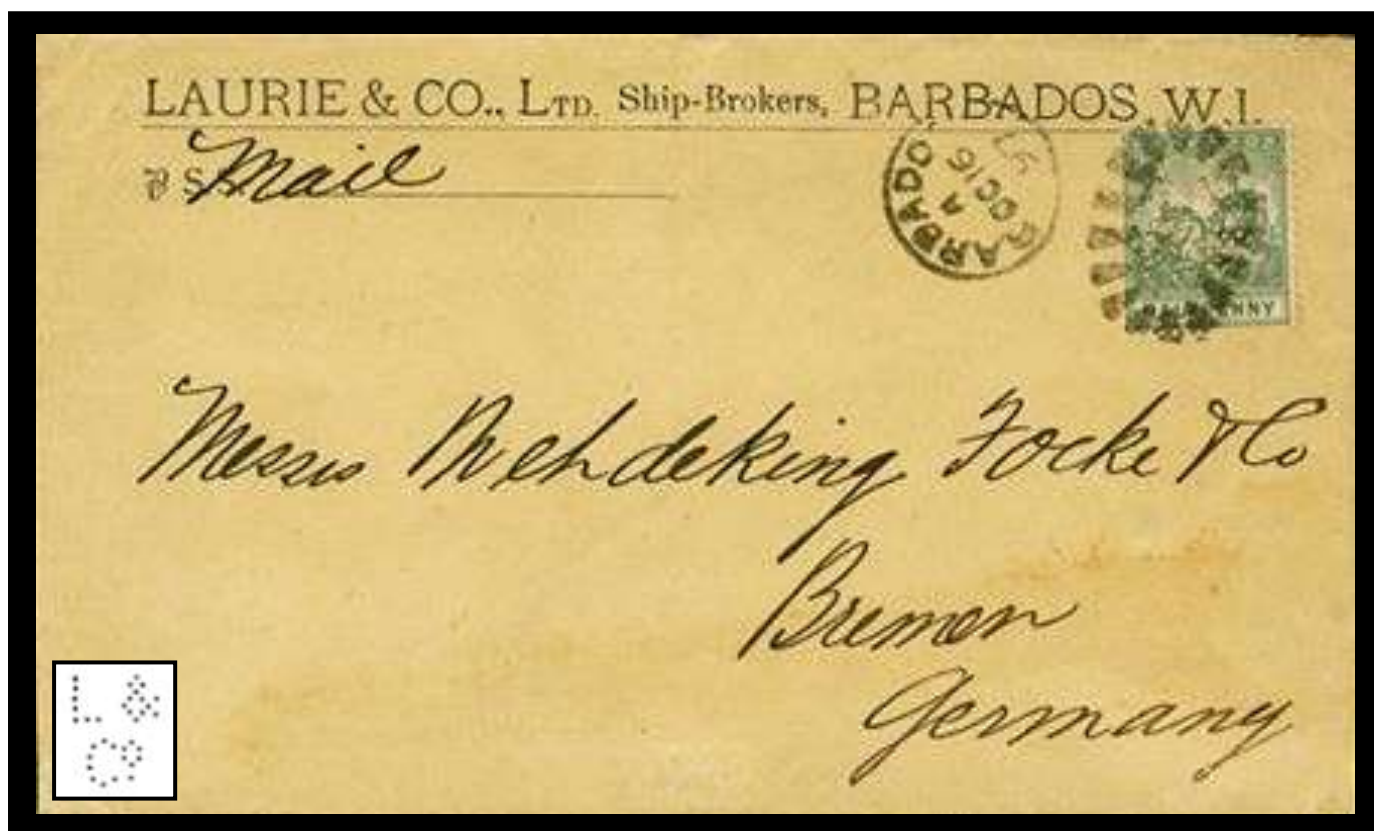 LAURIE & CO., LTD. Ship-Brokers, BARBADOS, W.I.
Mail
BARBADO
A
OC 16
97
HALFPENNY
Messrs Mehdeking Focke & Co
Bremen
Germany
L &
Co